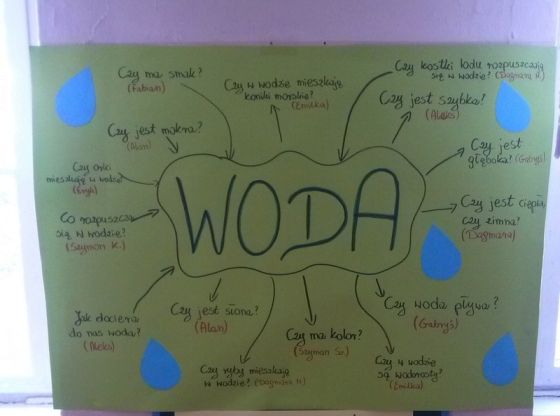 Czy ma smak?
(Fabian)
Czy w wodzie mieszkają
koniki morskie?
(Emilka)
Czy kostki lodu rozpuszczają
się w wodzie? (Dagmara N.)
Czy jest szybka?
(Aleks)
Czy jest mokra?
(Alan)
Czy jest
głęboka? (Gabryś)
Czy orki
mieszkają w wodzie?
(Eryk)
WODA
Czy jest ciepła,
czy zimna?
(Dagmara)
Co rozpuszcza
się w wodzie?
(Szymon K.)
Jak dociera
do nas woda?
(Aleks)
Czy jest słona?
(Alan)
Czy ma kolor?
(Szymon Sz.)
Czy woda pływa?
(Gabryś)
Czy ryby mieszkają
w wodzie? (Dagmara N.)
Czy w wodzie
są wodorosty?
(Emilka)